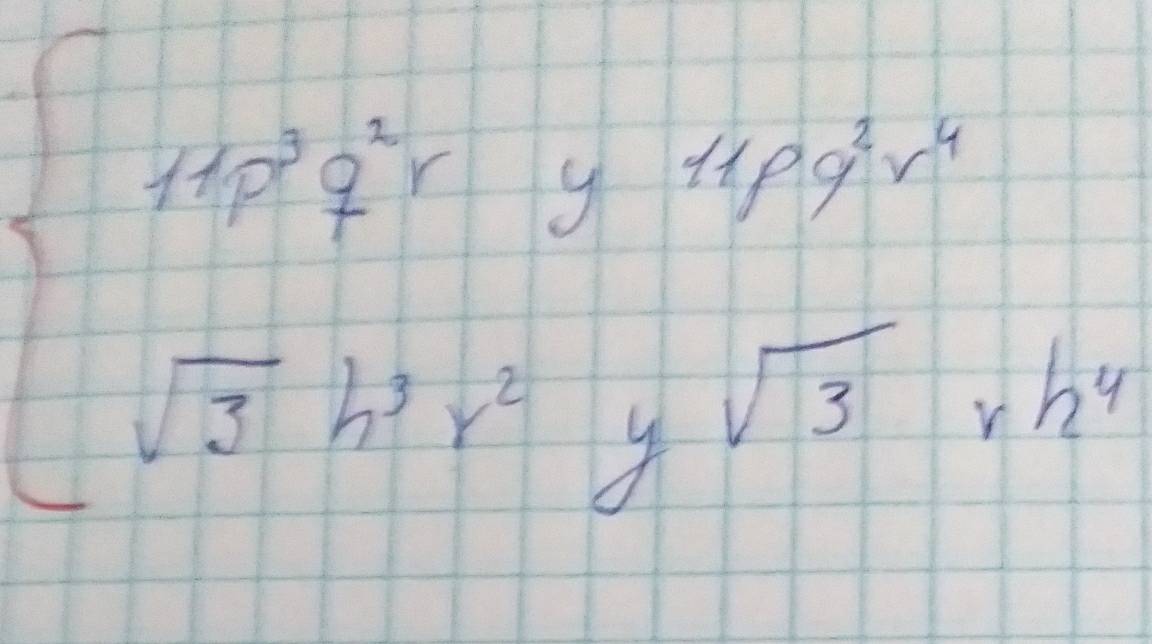 11p³q²r y 11pq²r⁴
√3 h³r² y √3 rh⁴